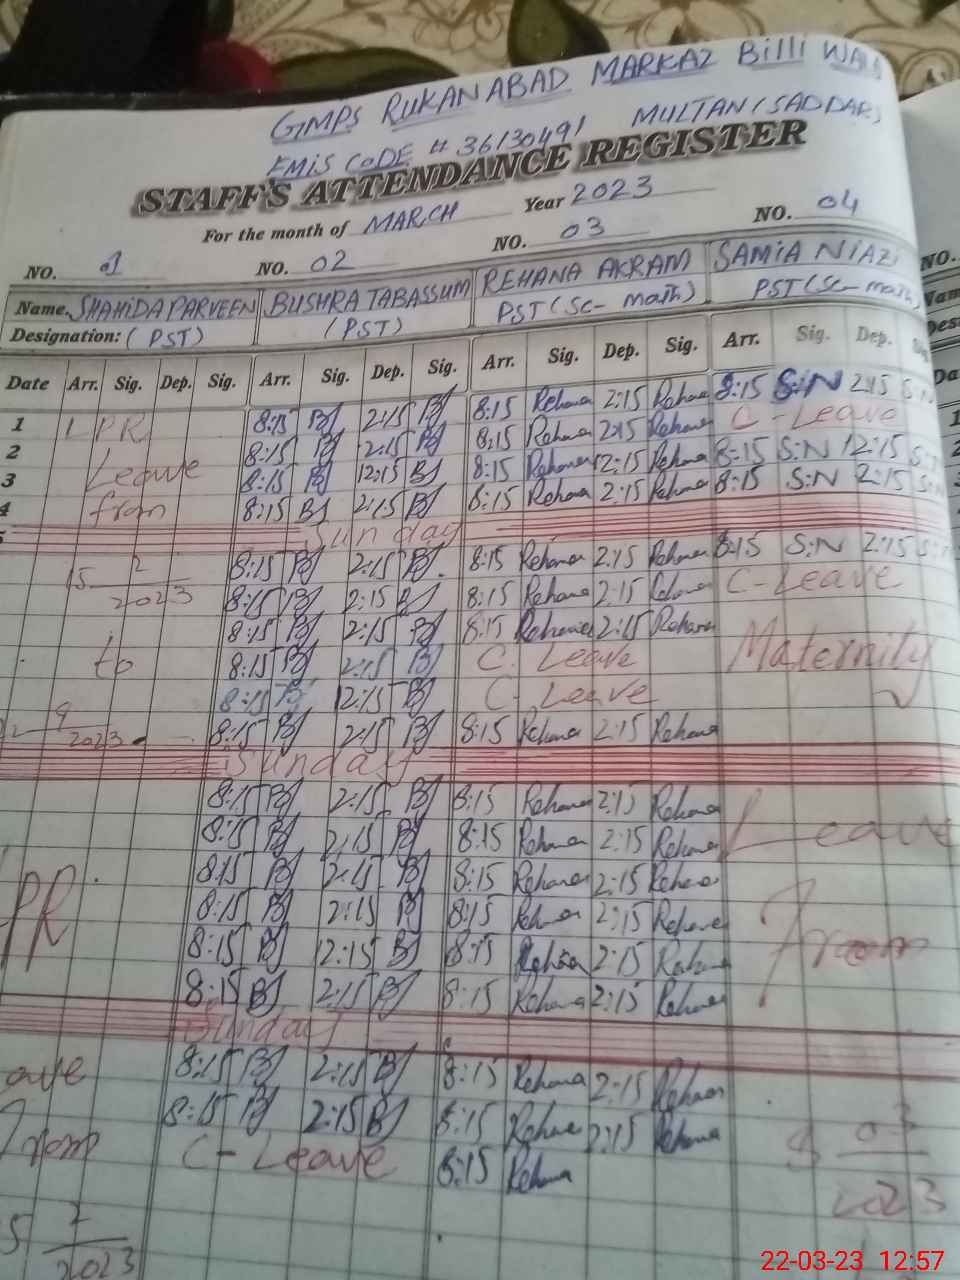 GMPS RUKANABAD MARKAZ Billi WALA
MULTAN (SADDAR)
EMIS CODE # 36130491
STAFF'S ATTENDANCE REGISTER
For the month of MARCH Year 2023
NO. 01 NO. 02 NO. 03 NO. 04
Name. SHAHIDA PARVEEN BUSHRA TABASSUM REHANA AKRAM SAMIA NIAZI
Designation: (PST) (PST) PST (Sc- math) PST (Sc- math)
Date Arr. Sig. Dep. Sig. Arr. Sig. Dep. Sig. Arr. Sig. Dep. Sig. Arr. Sig. Dep.
1 LPR 8:15 BJ 2:15 BJ 8:15 Rehana 2:15 Rehana 8:15 S:N 2:15 S:N
2 8:15 BJ 2:15 BJ 8:15 Rehana 2:15 Rehana C-Leave
3 Leave 8:15 BJ 12:15 BJ 8:15 Rehana 12:15 Rehana 8:15 S:N 12:15
4 from 8:15 BJ 2:15 BJ 8:15 Rehana 2:15 Rehana 8:15 S:N 2:15
Sunday
15 2 8:15 BJ 2:15 BJ 8:15 Rehana 2:15 Rehana 8:15 S:N 2:15
2023 8:15 BJ 2:15 BJ 8:15 Rehana 2:15 Rehana C-Leave
8:15 BJ 2:15 BJ 8:15 Rehana 2:15 Rehana
to 8:15 BJ 2:15 BJ C. Leave Maternity
8:15 BJ 12:15 BJ C- Leave
2023 8:15 BJ 2:15 BJ 8:15 Rehana 2:15 Rehana
Sunday
8:15 BJ 2:15 BJ 8:15 Rehana 2:15 Rehana
8:15 BJ 2:15 BJ 8:15 Rehana 2:15 Rehana Leave
8:15 BJ 2:15 BJ 8:15 Rehana 2:15 Rehana
PR 8:15 BJ 2:15 BJ 8:15 Rehana 2:15 Rehana
8:15 BJ 12:15 BJ 8:15 Rehana 2:15 Rehana From
8:15 BJ 2:15 BJ 8:15 Rehana 2:15 Rehana
Sunday
ave 8:15 BJ 2:15 BJ 8:15 Rehana 2:15 Rehana
8:15 BJ 2:15 BJ 8:15 Rehana 2:15 Rehana
From C-Leave 8:15 Rehana
8 03
2023
5 2
2023
22-03-23 12:57